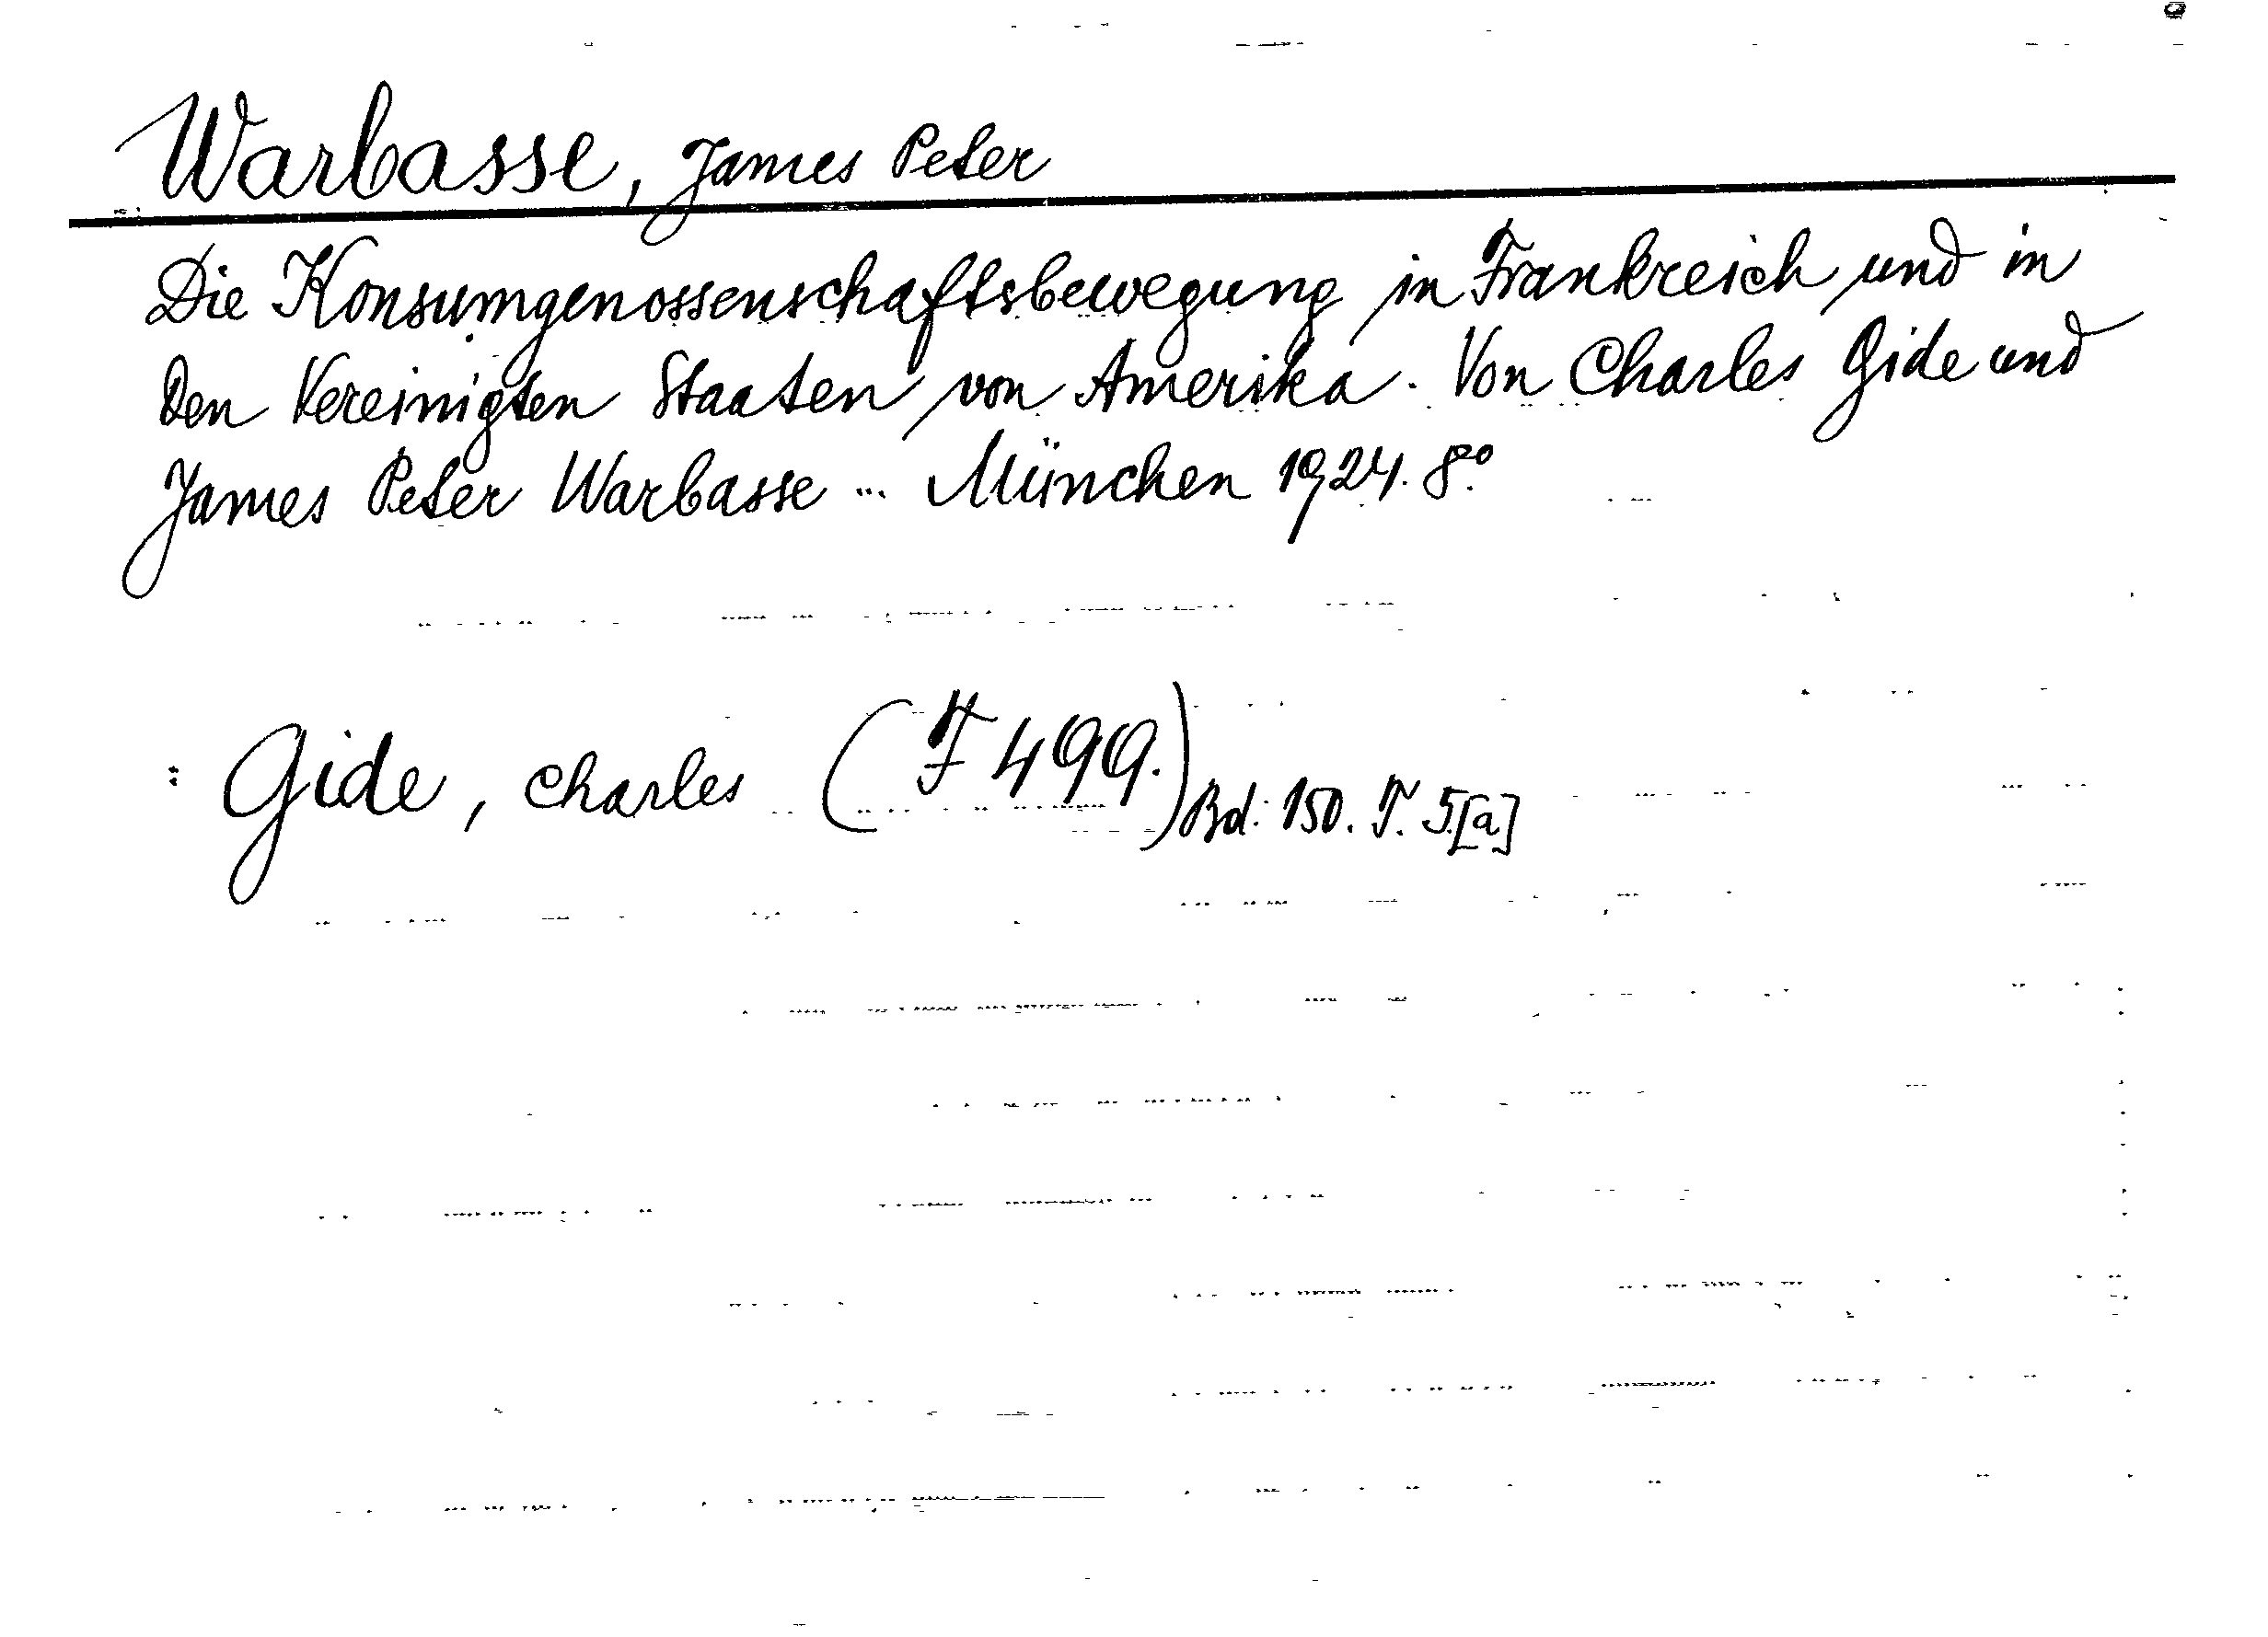 Warbasse, James Peter
Die Konsumgenossenschaftsbewegung in Frankreich und in
den Vereinigten Staaten von Amerika. Von Charles Gide und
James Peter Warbasse ... München 1924. 8°.
: Gide, Charles (F 499.) Bd: 150. T. 5.[a]